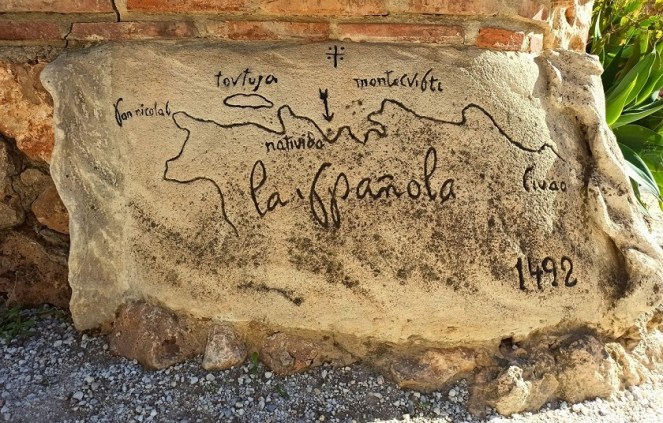 tortuga
monte cristi
san nicolas
natividad
la española
civao
1492